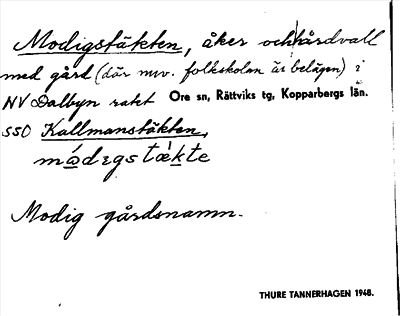 Modigstäkten, åker och hårdvall
med gård (där nuv. folkskolan är belägen) i
NV Dalbyn Ore sn, Rättviks tg, Kopparbergs län.
SSO Kallmanstäkten,
Modig gårdsnamn.
THURE TANNERHAGEN 1948.